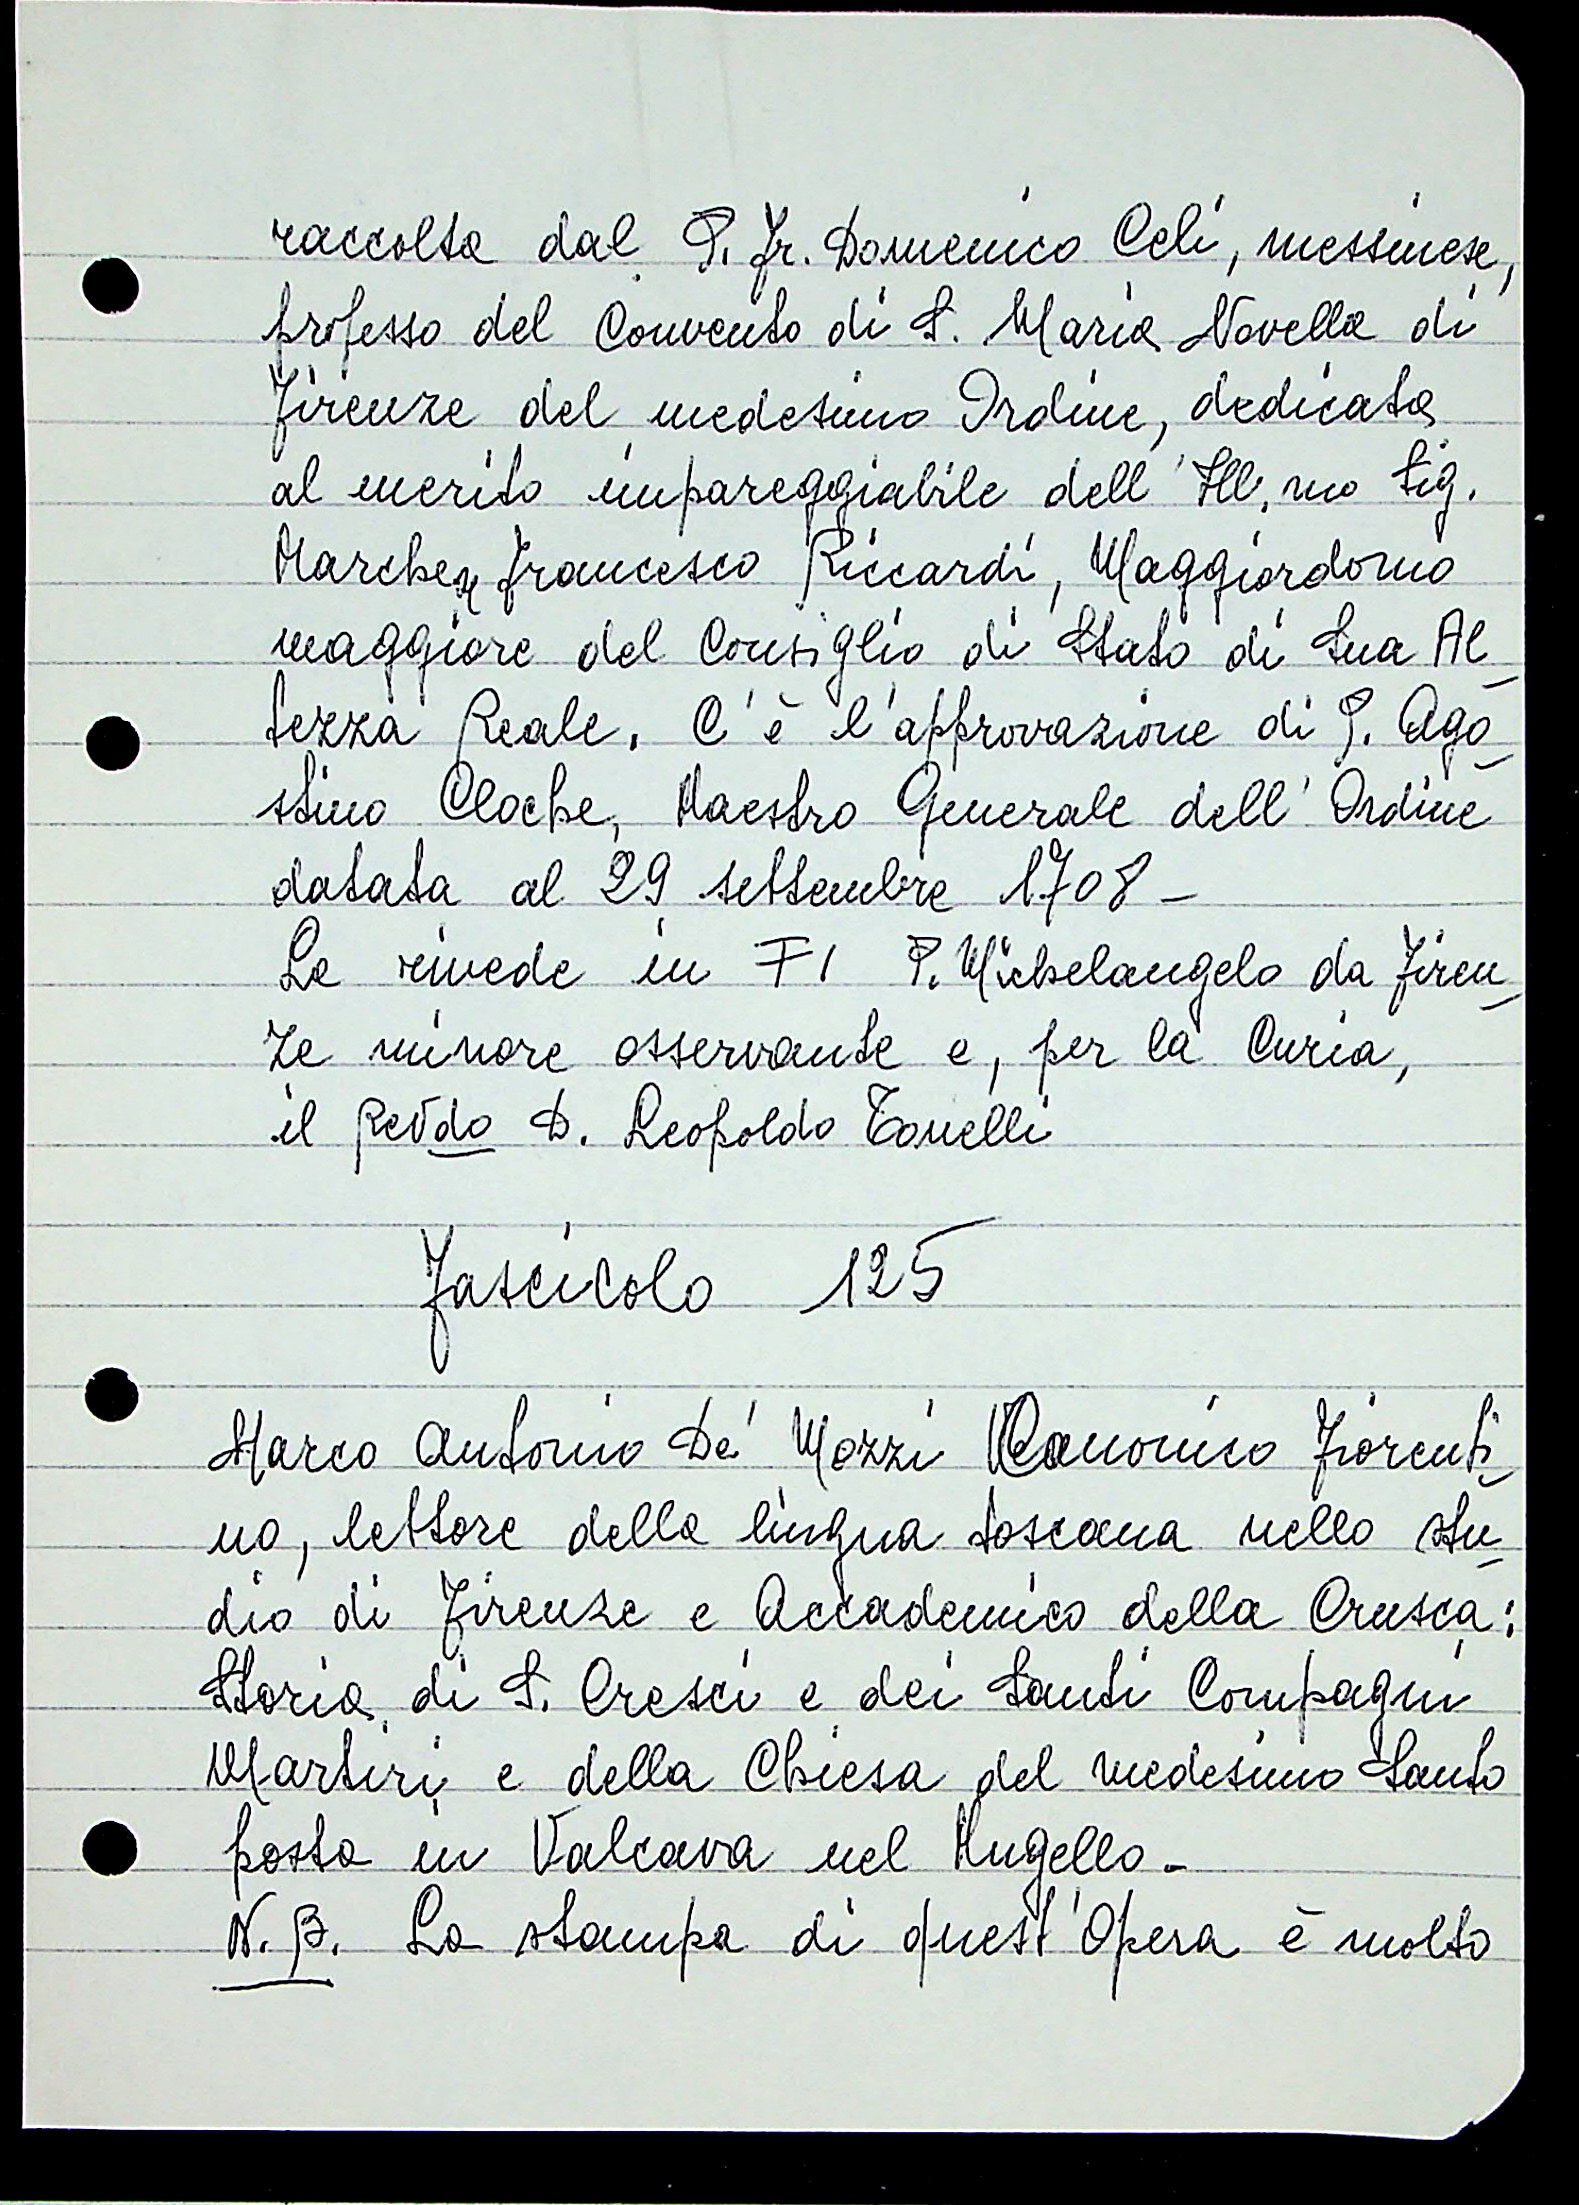 raccolta dal P. Fr. Domenico Celi, messinese,
professo del Convento di S. Maria Novella di
Firenze del medesimo Ordine, dedicata
al merito impareggiabile dell'Ill.mo Sig.
Marchese Francesco Riccardi, Maggiordomo
maggiore del Consiglio di Stato di Sua Al_
tezza Reale. C'è l'approvazione di P. Ago_
stino Cloche, Maestro Generale dell'Ordine
datata al 29 settembre 1708 -
La rivede in FI P. Michelangelo da Firen_
ze minore osservante e, per la Curia,
il Revdo D. Leopoldo Tonelli
Fascicolo 125
Marco Antonio De' Mozzi Canonico Fiorenti_
no, lettore della lingua toscana nello stu_
dio di Firenze e Accademico della Crusca:
Storia di S. Cresci e dei Santi Compagni
Martiri e della Chiesa del medesimo Santo
posta in Valcava nel Mugello -
N.B. La stampa di quest'Opera è molto